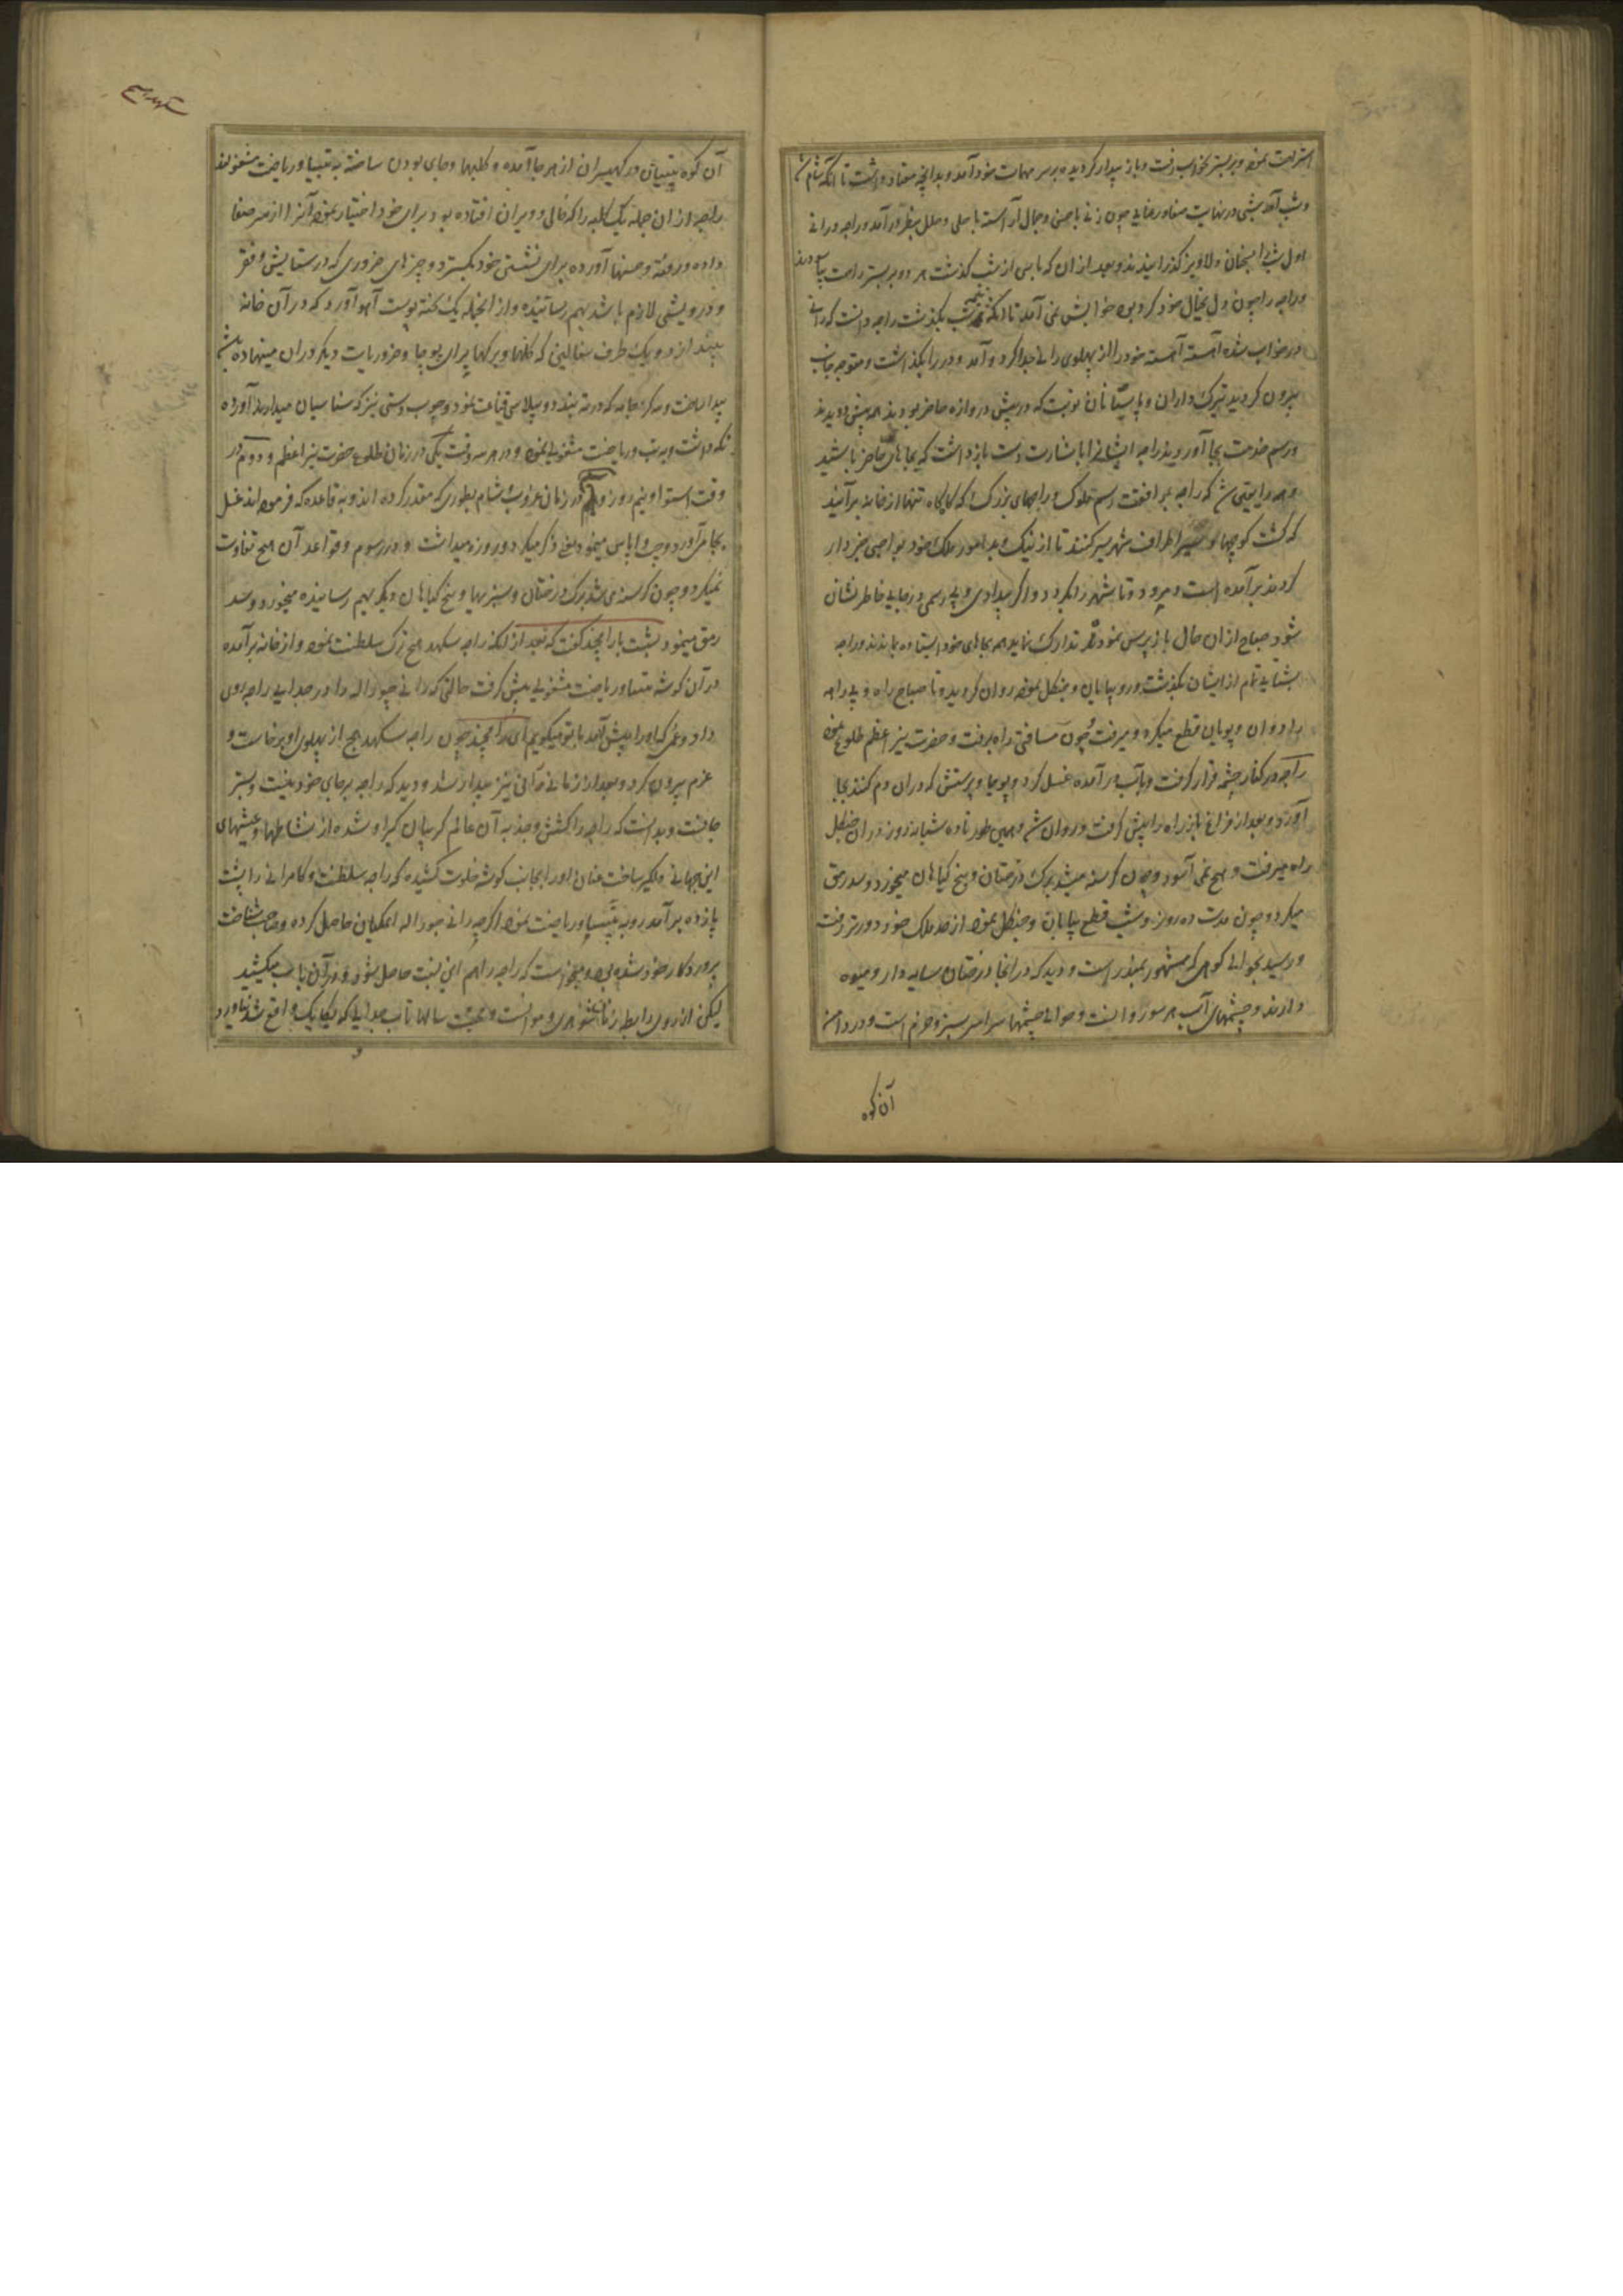 استراحت نموده و بر بستر بخواب رفت و باز بیدار گردیده بر سر مهمات خود آمد و بدانچه معتاد داشت تا آنکه شام شد
و شب آمد شبی در نهایت صفا و رعنایی چون زنی با حسن و جمال آراسته با حلی و حلل بنظر درآمد و راجه و رانی
اول شب با سخنان دلاویز گذرانیدند و بعد از ان که پاسی از شب گذشت هر دو بر بستر راحت
و راجه را چون دل بخیال خود گرد بود خوابش نمی آمد تا آنکه نیم شب بگذشت راجه دانست که رانی
در خواب شده آهسته آهسته خود را از پهلوی رانی جدا کرد و آمد و در را بگذاشت و متوجه جانب
بیرون گردید ترک داران و پاسبانان نوبت که در پیش دروازه حاضر بودند همه پیش دویدند
و رسم خدمت بجا آوردند راجه ایشانرا باشارت دست باز داشت که بجاهای حاضر باشید
که راجه بموافقت رسم ملوک و راجهای بزرگ که گاه گاه تنها از خانه برآیند
که گشت کوچها و سیر اطراف شهر سیر کنند تا از نیک و بد امور ملک خود بواجبی خبردار
گردند برآمده است و میرود تا شهر را بگردد و اگر بیدادی و بی رسمی در جایی خاطر نشان
شود صباح از ان حال باز پرس نموده تدارک نماید همه بجاهای خود ایستاده بماندند و راجه
بشتابی تمام از ایشان بگذشت و رو به بیابان و جنگل نموده روان گردید و تا صباح راه و بی راهه
را دوان و پویان قطع میکرد و میرفت و چون مسافتی راه برفت و حضرت نیر اعظم طلوع نمود
راجه در کنار چشمه قرار گرفت و بآب درآمده غسل کرد و پوجا و پرستش که در ان دم کنند بجا
آورد و بعد از فراغ باز راه را پیش گرفت و روان شد و همین طور تا ده شبانه روز در ان جنگل
راه میرفت و هیچ نمی آسود و چون گرسنه میشد برگ درختان و بیخ گیاهان میخورد و سد رمق
میکرد و چون مدت ده روز و شب قطع بیابان و جنگل نموده از حد ملک خود دورتر رفت
و رسید بحوالی کوهی که مشهور بمندر است و دید که در انجا درختان سایه دار و میوه
دارند و چشمهای آب هر سو روانست و حوالی چشمها سراسر سبز و خرم است و در دامن
آن کوه
آن کوه تپسیان و رکهیسران از هر جا آمده و کلبها و جای بودن ساخته به تپسیا و ریاضت مشغولند
راجه از ان جمله یک کلبه را که خالی و ویران افتاده بود برای خود اختیار نموده آنرا از سر صفا
داده و رفته و حسنها آورده برای نشستن خود بگسترد و چیزهای ضروری که در ستایش و فقر
و درویشی لازم باشد بهم رسانیده و از انجمله یک تخته پوست آهو آورد که در آن خانه
بیندازد و یک ظرف سفالین که گلها و برگها برای پوجا و ضروریات دیگر در ان مینهاده باشد
پیدا ساخت و سه گز جامه که در ته بندد و بپلاسی قناعت نمود و چوب دستی نیز که سناسیان میدارند آورده
نگه داشت و به تپ و ریاضت مشغولی نموده و در هر سه وقت یکی در زمان طلوع حضرت نیر اعظم و دوم در
وقت استوا و نیم روز و سیم در زمان غروب شام بطوری که مقدر کرده اند و به قاعده که فرموده اند غسل
بجا می آورد و جپ و اپاس مینمود یعنی ذکر میکرد و روزه میداشت و در رسوم و قواعد آن هیچ تفاوت
نمیکرد و چون گرسنه می شد برگ درختان و سبزیها و بیخ گیاهان دیگر بهم رسانیده میخورد و سد
رمق مینمود بشست با رامچند گفت که بعد از آنکه راجه سکهدهج ترک سلطنت نموده و از خانه برآمده
در آن گوشه بتپسیا و ریاضت مشغولی پیش گرفت حالتی که رانی چوراله را در جدایی راجه روی
داد و غمی که او را پیش آمد با تو میگویم ای رامچند چون راجه سکهدهج از پهلوی او برخاست و
عزم بیرون کرد و بعد از زمانی رانی نیز بیدار شد و دید که راجه بر جای خود نیست و بستر
خالیست و بدانست که راجه را کشش و جذبه آن عالم گریبان گیر او شده از نشاطها و عیشهای
این جهانی دلگیر ساخت عنان او را بجانب گوشه خلوت کشیده که راجه سلطنت و کامرانی را پشت
پا زده برآمد رو به تپسیا و ریاضت نموده اگرچه رانی چوراله اگیان حاصل کرده و صاحب شناخت
پروردگار خود شده بود و میخواست که راجه را هم این نسبت حاصل شود و در آن باب میکشید
لیکن از روی رابطه زنا شوهری و موانست و محبت سالها تاب جدایی که یکایک واقع شد نیاورد